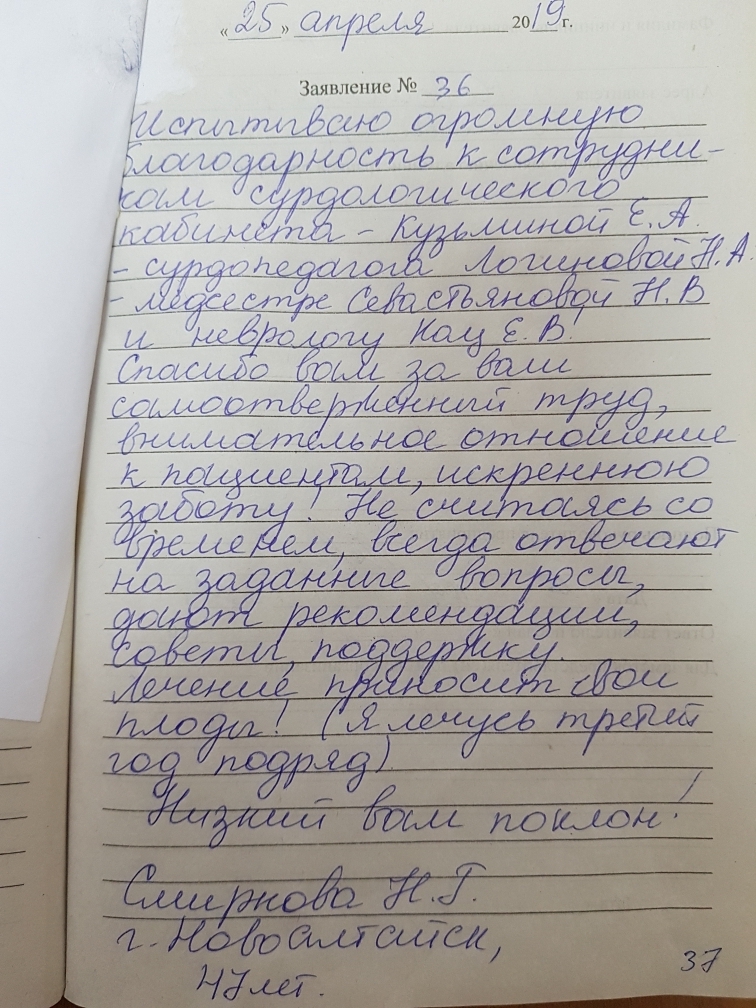 « 25 » апреля 2019 г.
Заявление № 36
Испытываю огромную
благодарность к сотрудни-
кам сурдологического
кабинета - Кузьминой Е.А.
- сурдопедагога Логиновой Н.А.
- медсестре Севастьяновой Н.В
и неврологу Кац Е.В!
Спасибо вам за ваш
самоотверженный труд,
внимательное отношение
к пациентам, искреннюю
заботу! Не считаясь со
временем, всегда отвечают
на заданные вопросы,
дают рекомендации,
советы, поддержку.
Лечение приносит свои
плоды! (Я лечусь третий
год подряд)
Низкий вам поклон!
Смирнова Н.Г.
г. Новоалтайск,
47 лет.
37